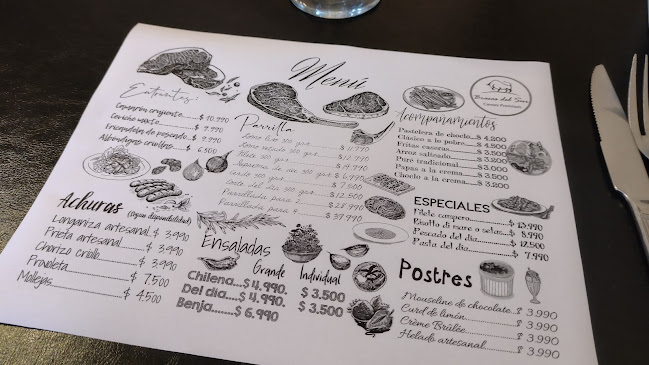 Menú
Entradas:
Camarón crujiente $ 10.990
Ceviche mixto $ 9.990
Encanelada de pescado $ 9.990
Albóndigas criollas $ 6.500
Parrilla
300 grs $ 11.990
300 grs $ 12.990
Filete 300 grs $ 14.990
300 grs $ 6.990
Cerdo 300 grs $ 7.500
Corte del día 300 grs $ 12.500
Parrillada para 2 $ 27.990
Parrillada para 4 $ 37.990
Acompañamientos
Pastelera de choclo $ 4.200
Clásico a lo pobre $ 4.500
Fritas caseras $ 3.500
Arroz salteado $ 3.200
Puré tradicional $ 3.000
Papas a la crema $ 3.200
Choclo a la crema $ 3.200
Achuras (Según disponibilidad)
Longaniza artesanal $ 3.990
Prieta artesanal $ 3.990
Chorizo criollo $ 3.990
Provoleta $ 7.500
Mollejas $ 4.500
Ensaladas
Grande Individual
Chilena....$ 4.990. $ 3.500
Del día....$ 4.990. $ 3.500
Benja.......$ 6.990
ESPECIALES
Filete campero $ 13.990
Risotto di mare o setas $ 8.990
Pescado del día $ 12.500
Pasta del día $ 7.990
Postres
Mouseline de chocolate $ 3.990
Curd de limón $ 3.990
Crème Brûlée $ 3.990
Helado artesanal $ 3.990